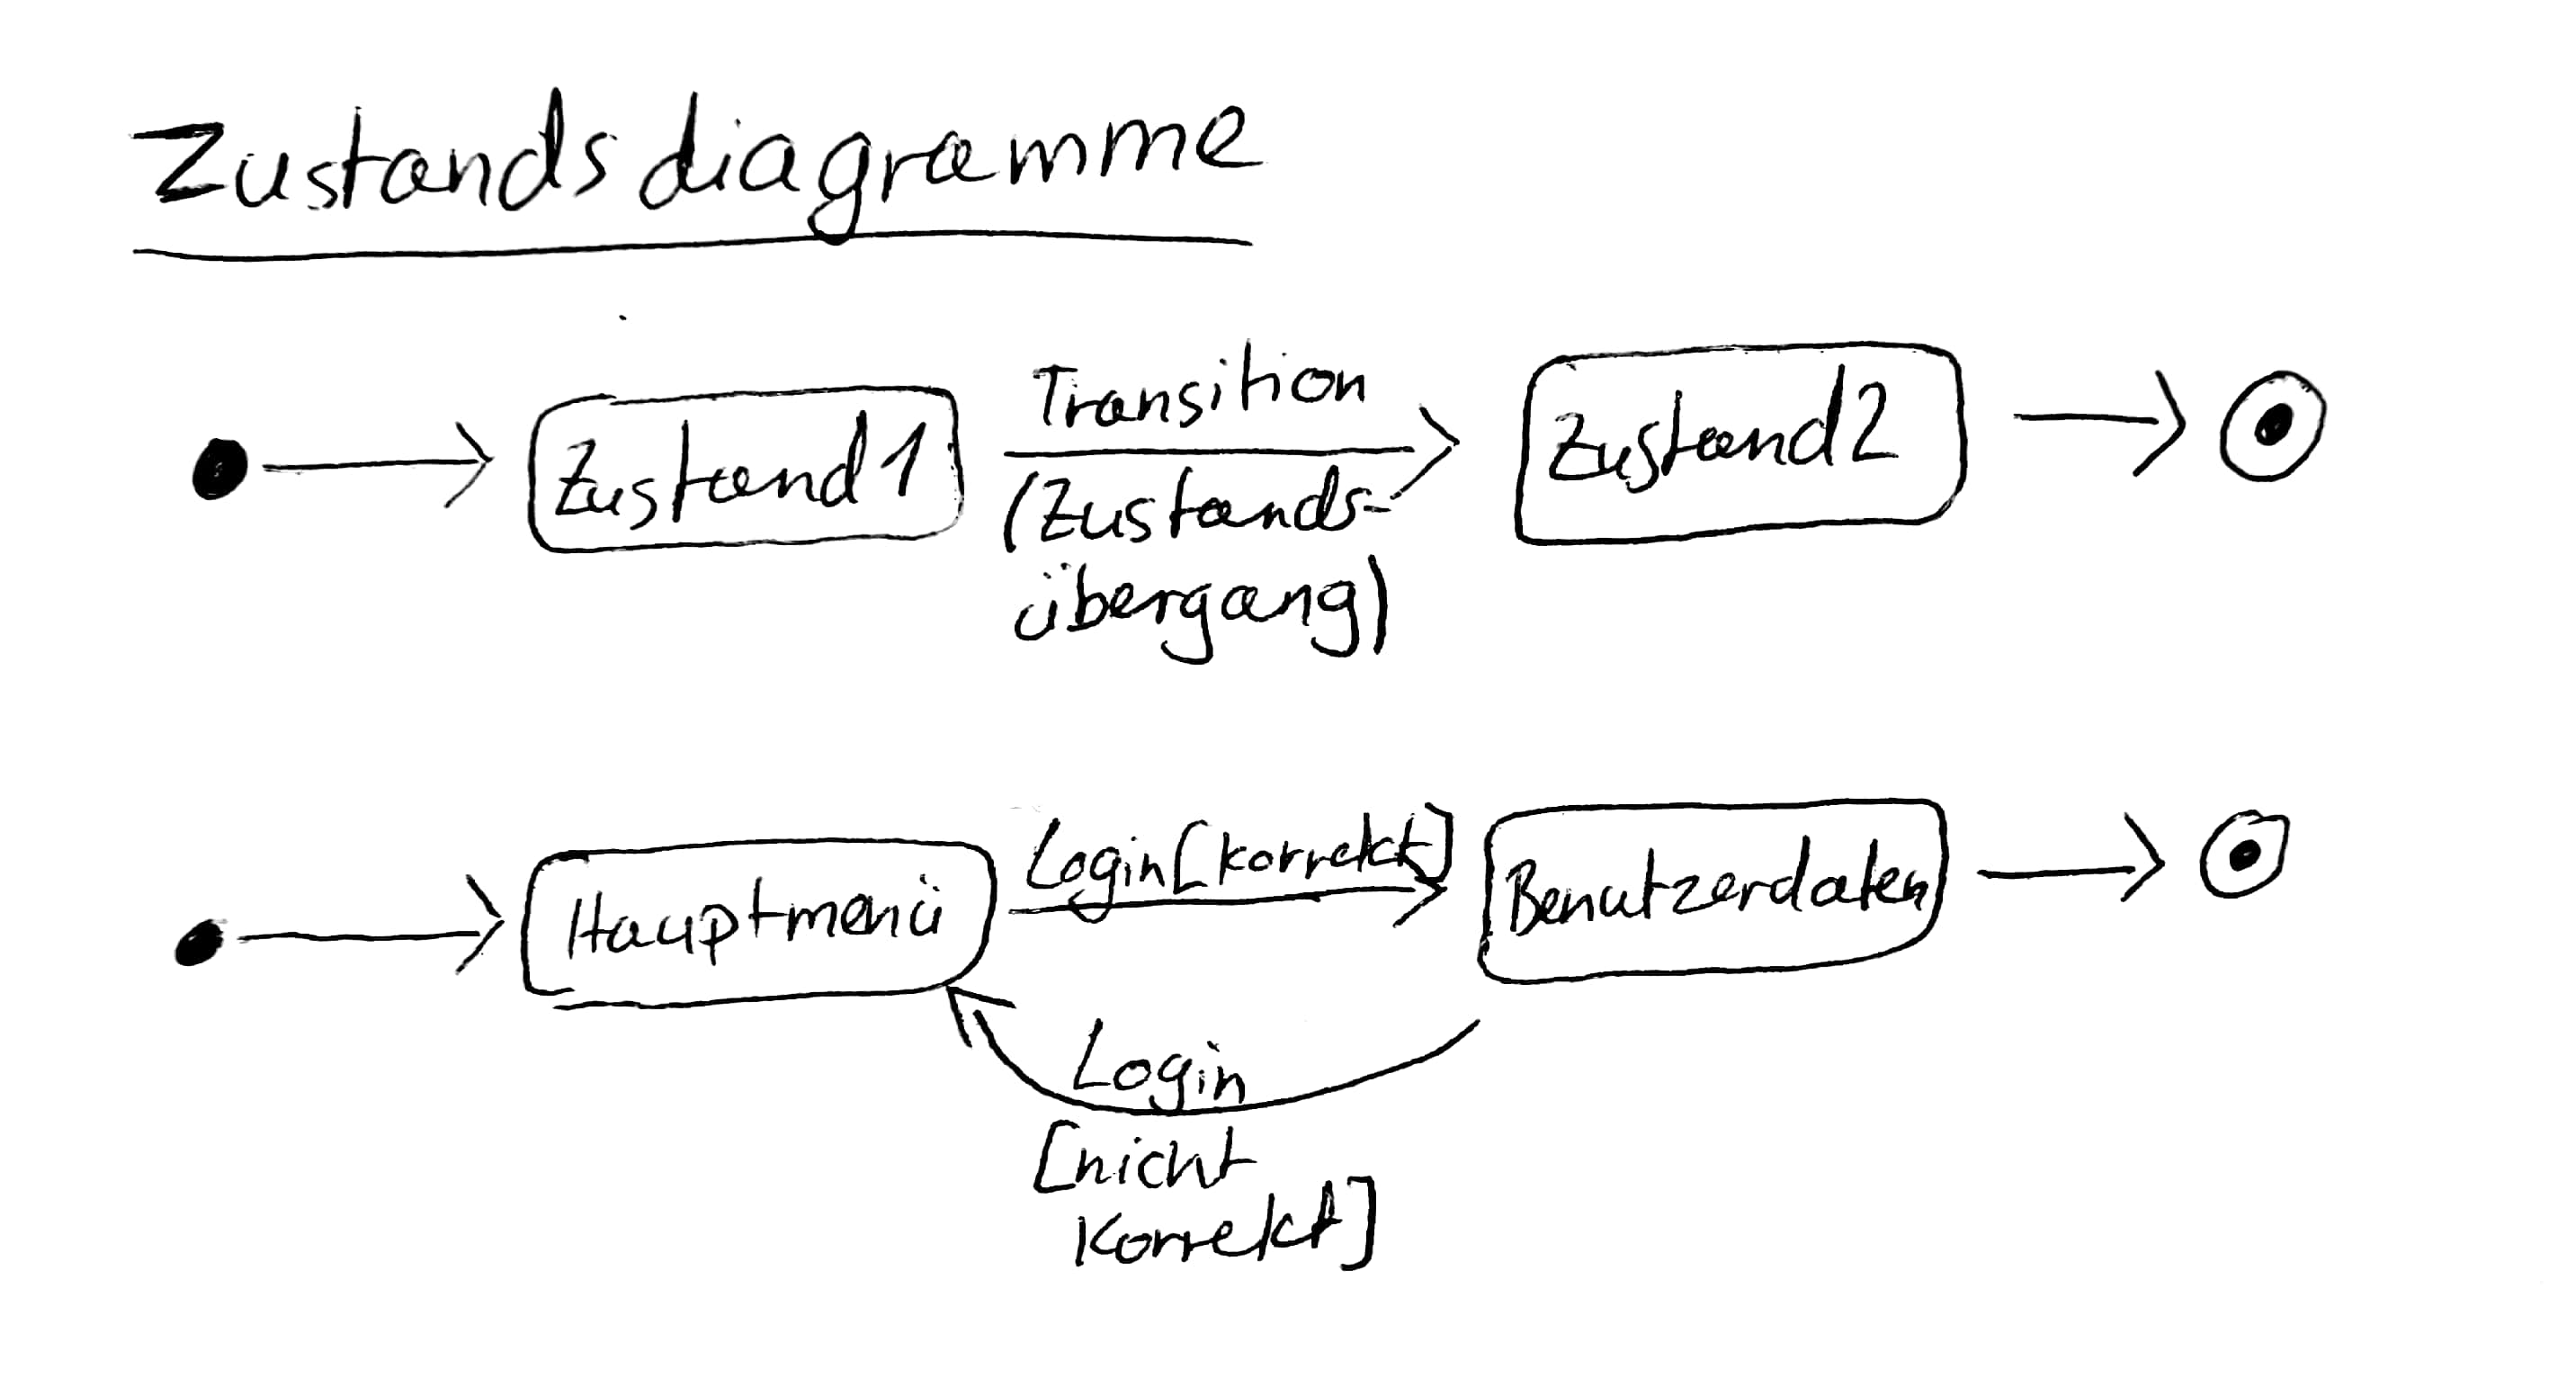 Zustandsdiagramme
Zustand 1
Transition
(Zustands-
übergang)
Zustand 2
Hauptmenü
Login [korrekt]
Benutzerdaten
Login
[nicht
korrekt]